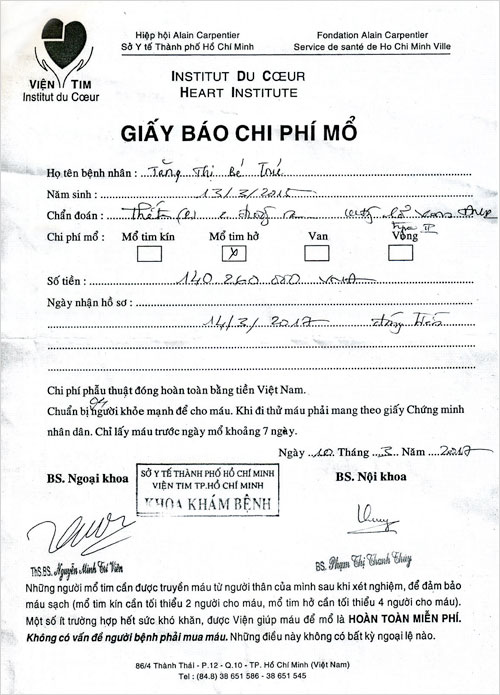 Hiệp hội Alain Carpentier
Sở Y tế Thành phố Hồ Chí Minh
Fondation Alain Carpentier
Service de santé de Ho Chi Minh Ville
VIỆN TIM
Institut du Cœur
INSTITUT DU CŒUR
HEART INSTITUTE
GIẤY BÁO CHI PHÍ MỔ
Họ tên bệnh nhân : Tăng Thị Bé Trú
Năm sinh : 13/3/2015
Chẩn đoán :
Chi phí mổ : Mổ tim kín Mổ tim hở Van Vòng
x
Số tiền : 140 260 000 VNĐ
Ngày nhận hồ sơ :
14/3/2017
Chi phí phẫu thuật đóng hoàn toàn bằng tiền Việt Nam.
Chuẩn bị 04 người khỏe mạnh để cho máu. Khi đi thử máu phải mang theo giấy Chứng minh
nhân dân. Chỉ lấy máu trước ngày mổ khoảng 7 ngày.
Ngày 10 Tháng 3 Năm 2017
BS. Ngoại khoa
SỞ Y TẾ THÀNH PHỐ HỒ CHÍ MINH
VIỆN TIM TP.HỒ CHÍ MINH
KHOA KHÁM BỆNH
BS. Nội khoa
ThS.BS. Nguyễn Minh Trí Viên
BS. Phạm Thị Thanh Thuy
Những người mổ tim cần được truyền máu từ người thân của mình sau khi xét nghiệm, để đảm bảo
máu sạch (mổ tim kín cần tối thiểu 2 người cho máu, mổ tim hở cần tối thiểu 4 người cho máu).
Một số ít trường hợp hết sức khó khăn, được Viện giúp máu để mổ là HOÀN TOÀN MIỄN PHÍ.
Không có vấn đề người bệnh phải mua máu. Những điều này không có bất kỳ ngoại lệ nào.
86/4 Thành Thái - P.12 - Q.10 - TP. Hồ Chí Minh (Việt Nam)
Tel : (84.8) 38 651 586 - 38 651 545